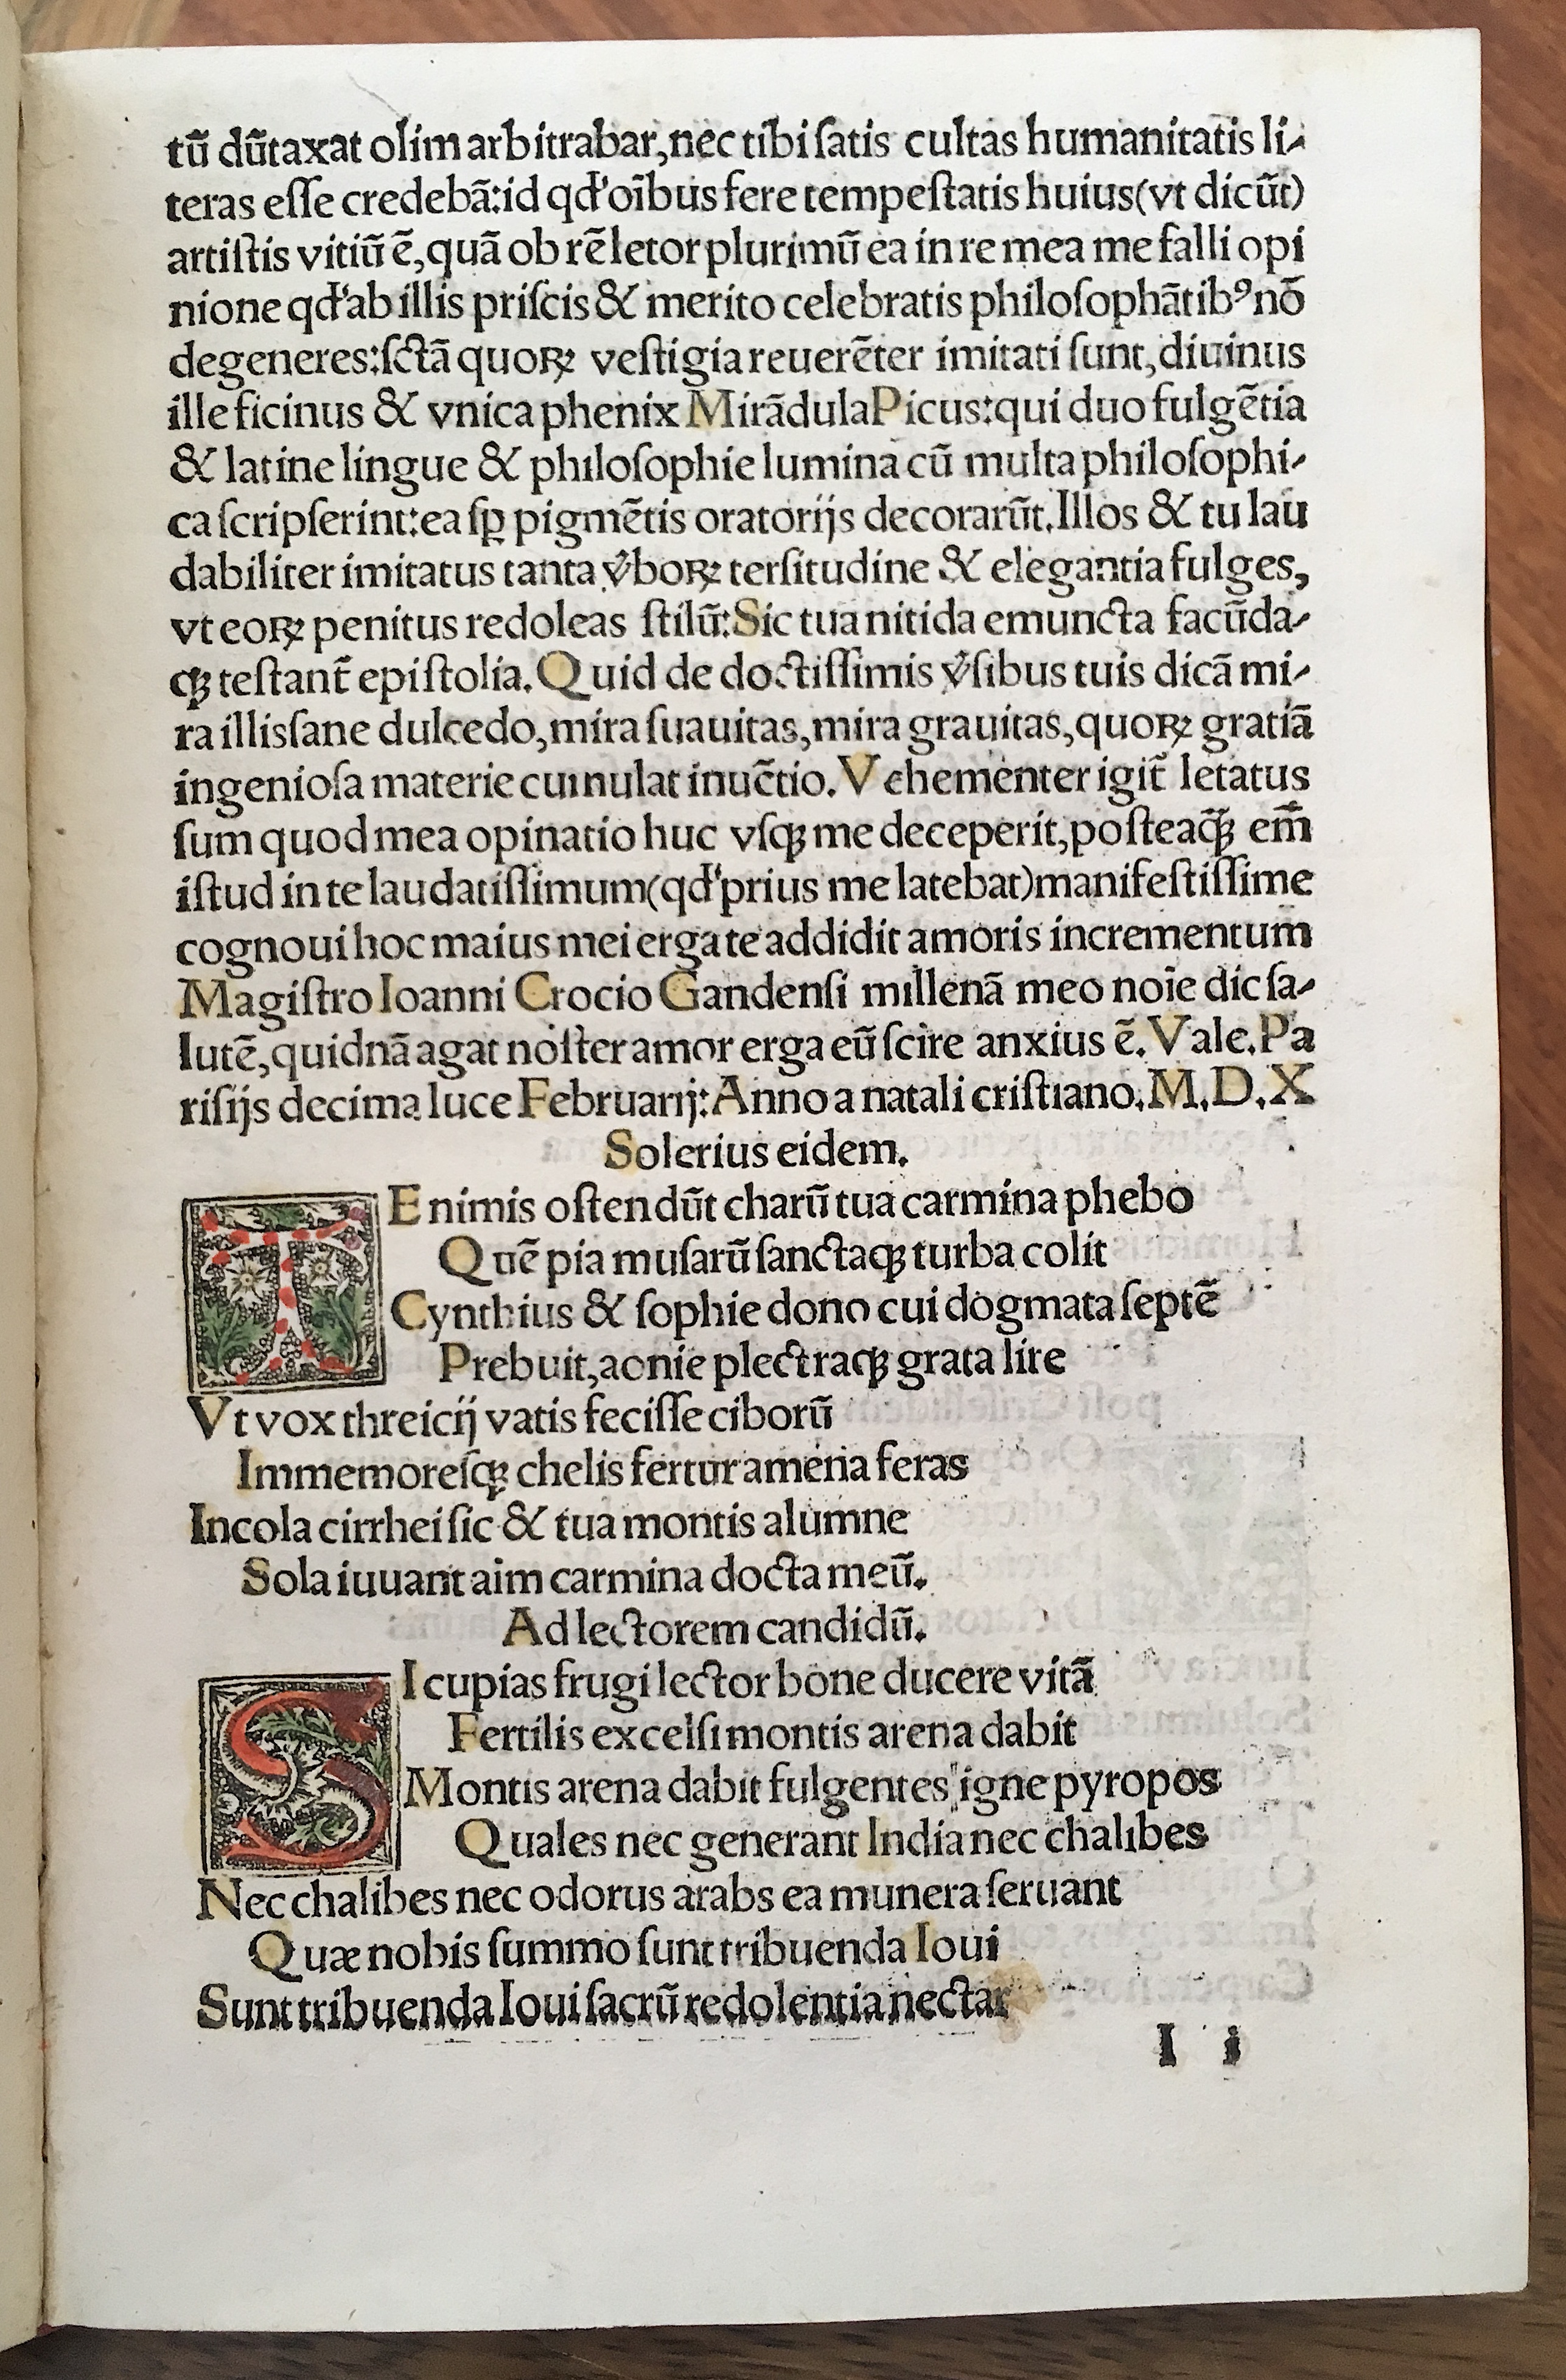 tũ dũtaxat olim arbitrabar,nec tibi ſatis cultas humanitatis li-
teras eſſe credebã:id qđ oĩbus fere tempeſtatis huius(vt dicũt)
artiſtis vitiũ ẽ,quã ob rẽ letor plurimũ ea in re mea me falli opi
nione qđ ab illis priſcis & merito celebratis philoſophãtibꝰ nõ
degeneres:ſctã quoꝝ veſtigia reuerẽter imitati ſunt,diuinus
ille ficinus & vnica phenix Mirãdula Picus:qui duo fulgẽtia
& latine lingue & philoſophie lumina cũ multa philoſophi-
ca ſcripſerint:ea ſꝑ pigmẽtis oratorijs decorarũt.Illos & tu lau
dabiliter imitatus tanta v̓boꝝ terſitudine & elegantia fulges,
vt eoꝝ penitus redoleas ſtilũ:Sic tua nitida emuncta facũda-
qꝫ teſtant̃ epiſtolia.Quid de doctiſſimis v̓ſibus tuis dicã mi-
ra illis ſane dulcedo,mira ſuauitas,mira grauitas,quoꝝ gratiã
ingenioſa materie cumulat inuẽtio.Vehementer igit̃ letatus
ſum quod mea opinatio huc vſqꝫ me deceperit,poſteaq̃ꝫ em̃
iſtud in te laudatiſſimum(qđ prius me latebat)manifeſtiſſime
cognoui hoc maius mei erga te addidit amoris incrementum
Magiſtro Ioanni Crocio Gandenſi millenã meo noĩe dic ſa-
lutẽ,quidnã agat noſter amor erga eũ ſcire anxius ẽ.Vale.Pa
riſijs decima luce Februarij:Anno a natali criſtiano.M.D.X
Solerius eidem.
TE nimis oſtendũt charũ tua carmina phebo
Quẽ pia muſarũ ſanctaqꝫ turba colit
Cynthius & ſophie dono cui dogmata ſeptẽ
Prebuit,aonie plectraqꝫ grata lire
Vt vox threicij vatis feciſſe ciborũ
Immemoreſqꝫ chelis fertur amena feras
Incola cirrhei ſic & tua montis alumne
Sola iuuant aim carmina docta meũ.
Ad lectorem candidũ.
SI cupias frugi lector bone ducere vitã
Fertilis excelſi montis arena dabit
Montis arena dabit fulgentes igne pyropos
Quales nec generant India nec chalibes
Nec chalibes nec odorus arabs ea munera ſeruant
Quæ nobis ſummo ſunt tribuenda Ioui
Sunt tribuenda Ioui ſacrũ redolentia nectar
I i